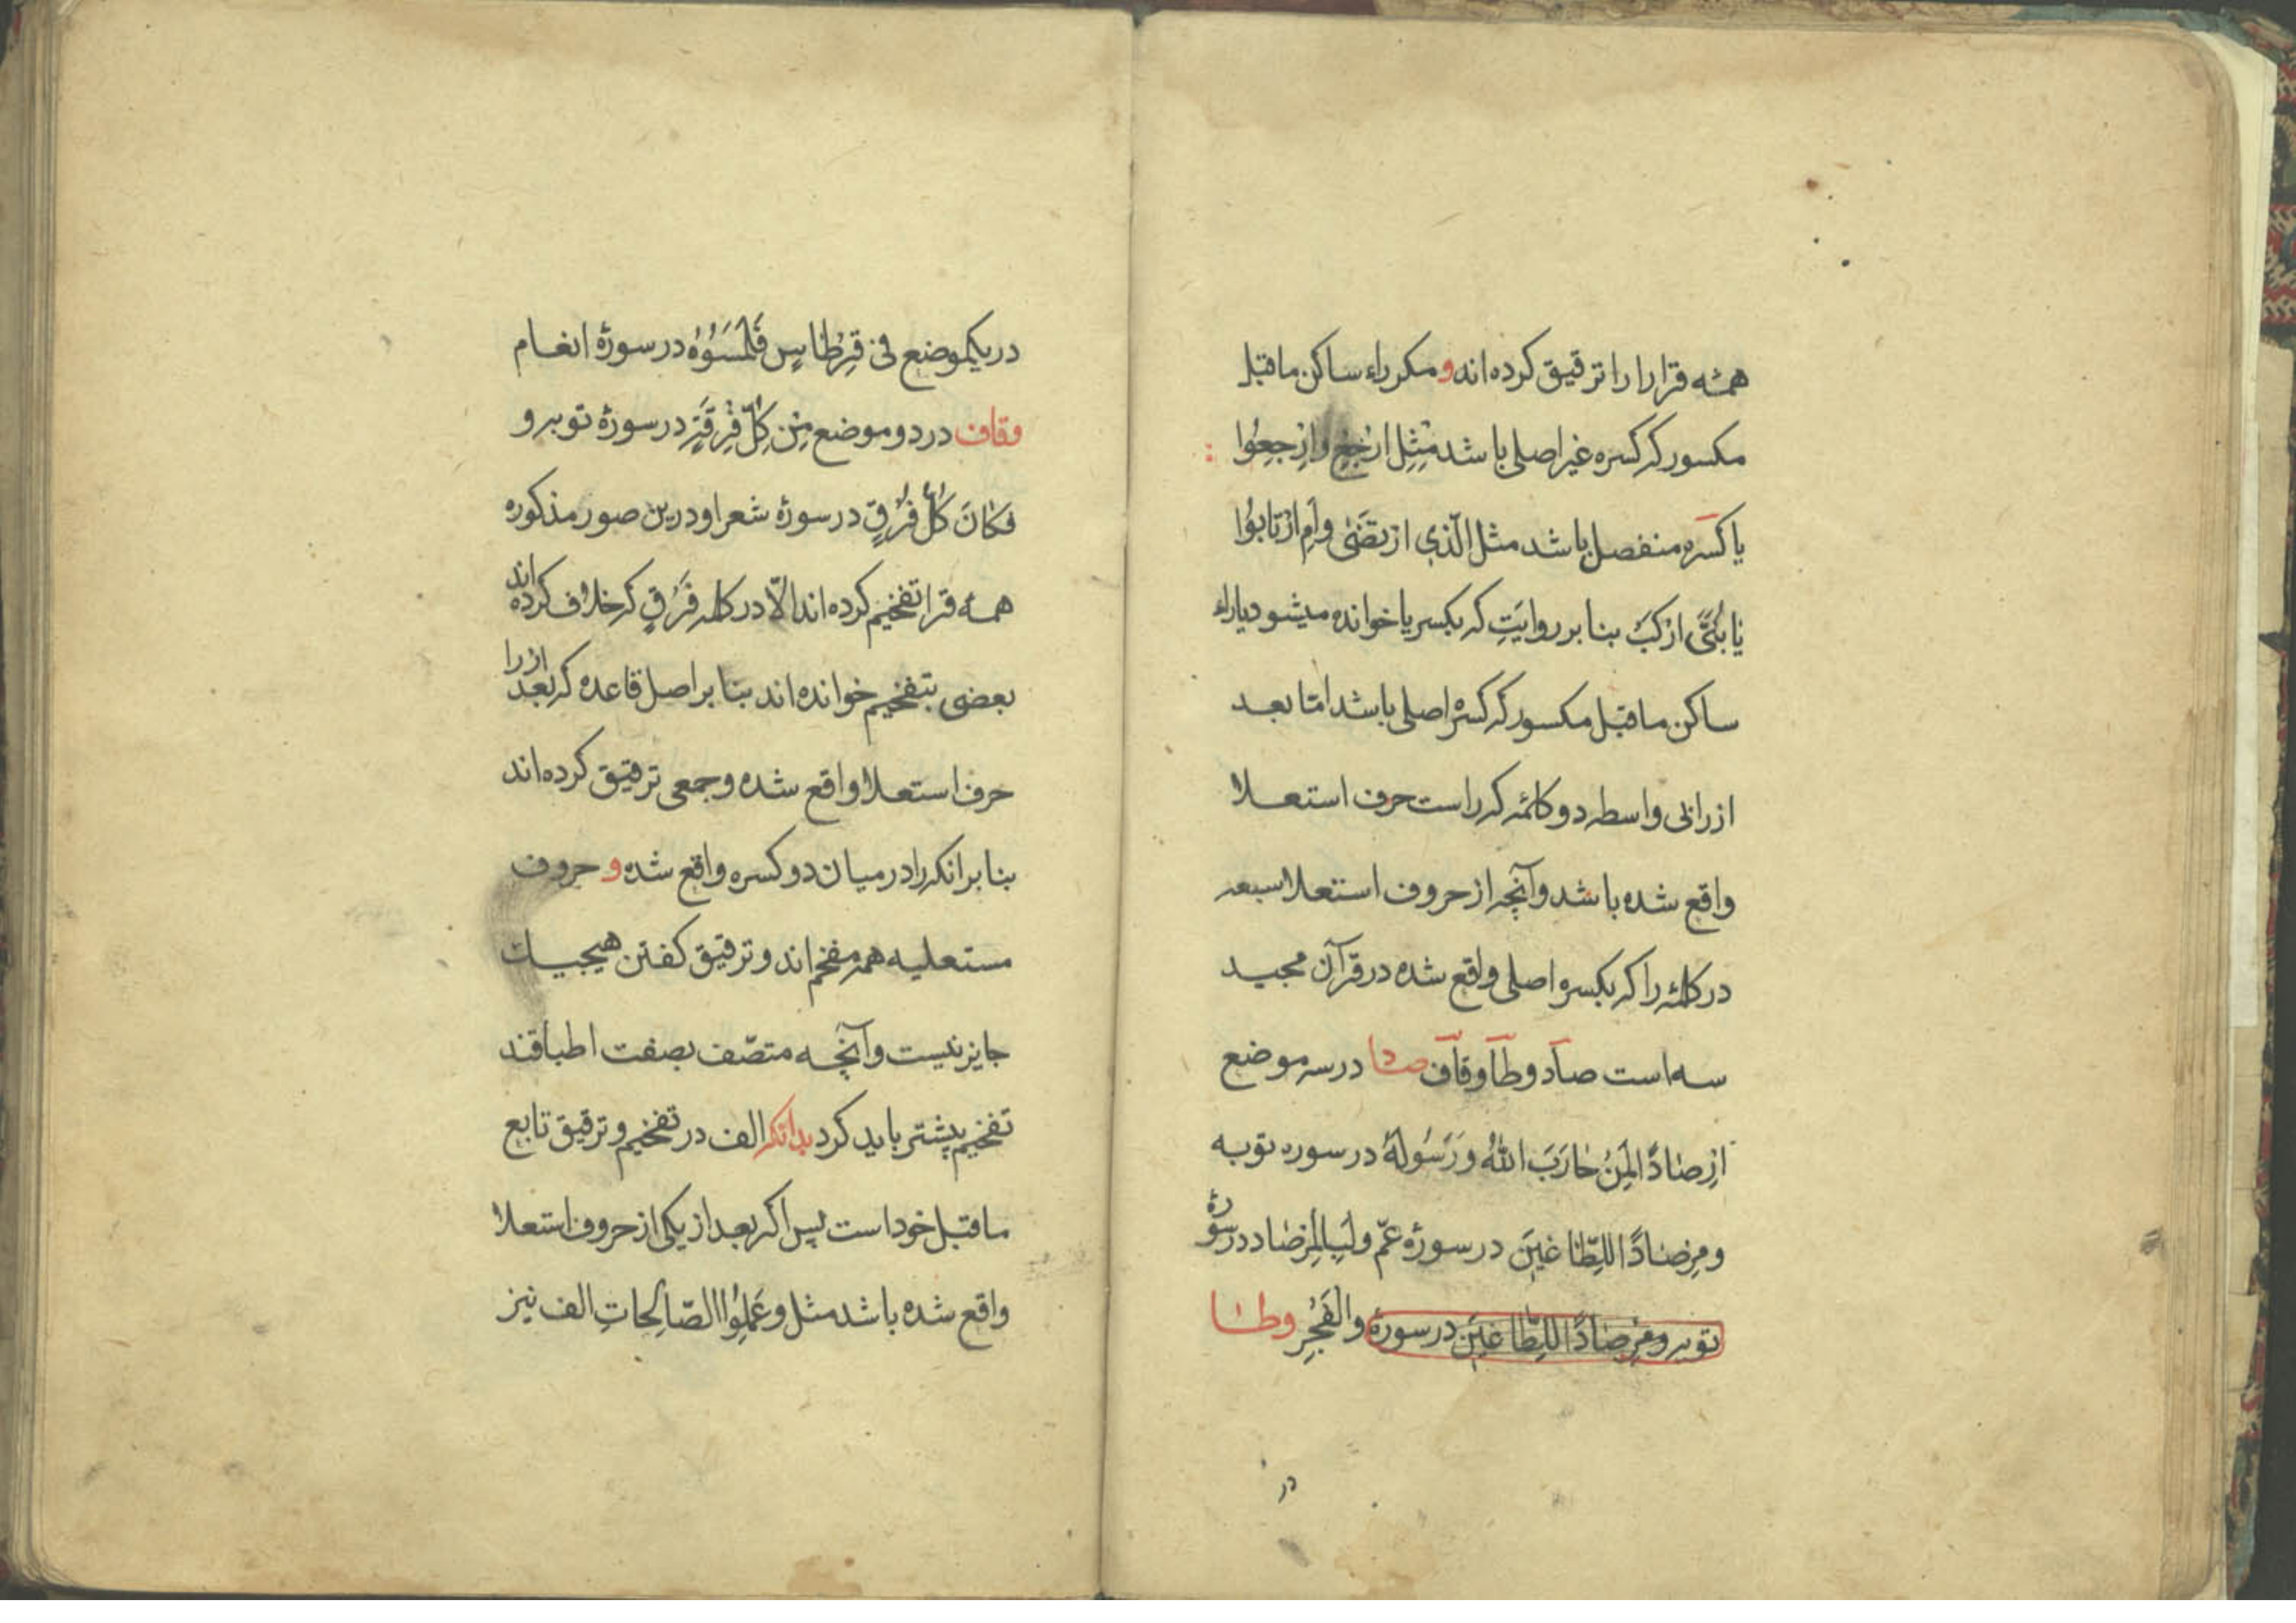 همه قرا را را ترقیق کرده‌اند و مکر راء ساکن ماقبل
مکسور که کسره غیر اصلی باشد مثل اِرْجِعْ وارْجِعُوا
یا کسره منفصل باشد مثل الَّذِي ارْتَضٰی وَاَمِ ارْتَابُوا
یَا بُنَیَّ ارْکَبْ بنا بر روایَتِ که بکسر یا خوانده میشود یا راء
ساکن ماقبل مکسور که کسرهٔ اصلی باشد امّا بعد
از را بی واسطه دو کلمه که راست حرف استعلا
واقع شده باشد وآنچه از حروف استعلا سبعه
در کلمه را که بکسره اصلی واقع شده در قرآن مجید
سه است صٓاد وطٓا وقٓاف صاد در سه موضع
اِرْصَادًا لِمَنْ حَارَبَ اللهُ وَرَسُولَهُ در سوره توبه
ومِرْصَادًا لِلطَّاغِینَ در سورهٔ عَمّ ولَبِالْمِرْصَاد در سورهٔ
توبه ومِرْصَادًا لِلطَّاغِینَ در سورهٔ والْفَجْرِ وطا
در
در یکموضع فی قِرْطَاسٍ فَلَمَسُوْهُ در سورهٔ انعام
وقاف در دو موضع مِنْ کُلِّ فِرْقَةٍ در سورهٔ توبه و
فَکَانَ کُلُّ فِرْقٍ در سورهٔ شعرا و درین صور مذکوره
همه قرا تفخیم کرده‌اند الّا در کلمه فرْقٍ که خلاف کرده اند
بعضی بتفخیم خوانده‌اند بنا بر اصل قاعده که بعد از را
حرف استعلا واقع شده وجمعی ترقیق کرده‌اند
بنا بر انکه را در میان دو کسره واقع شده و حروف
مستعلیه همه مفخم‌اند و ترقیق کفتن هیچیک
جایز نیست وآنچه متصّف بصفت اطباقند
تفخیم بیشتر باید کرد بدانکه الف در تفخیم وترقیق تابع
ماقبل خود است پس اکر بعد از یکی از حروف استعلا
واقع شده باشد مثل وعَمِلُوا الصَّالِحَاتِ الف نیز